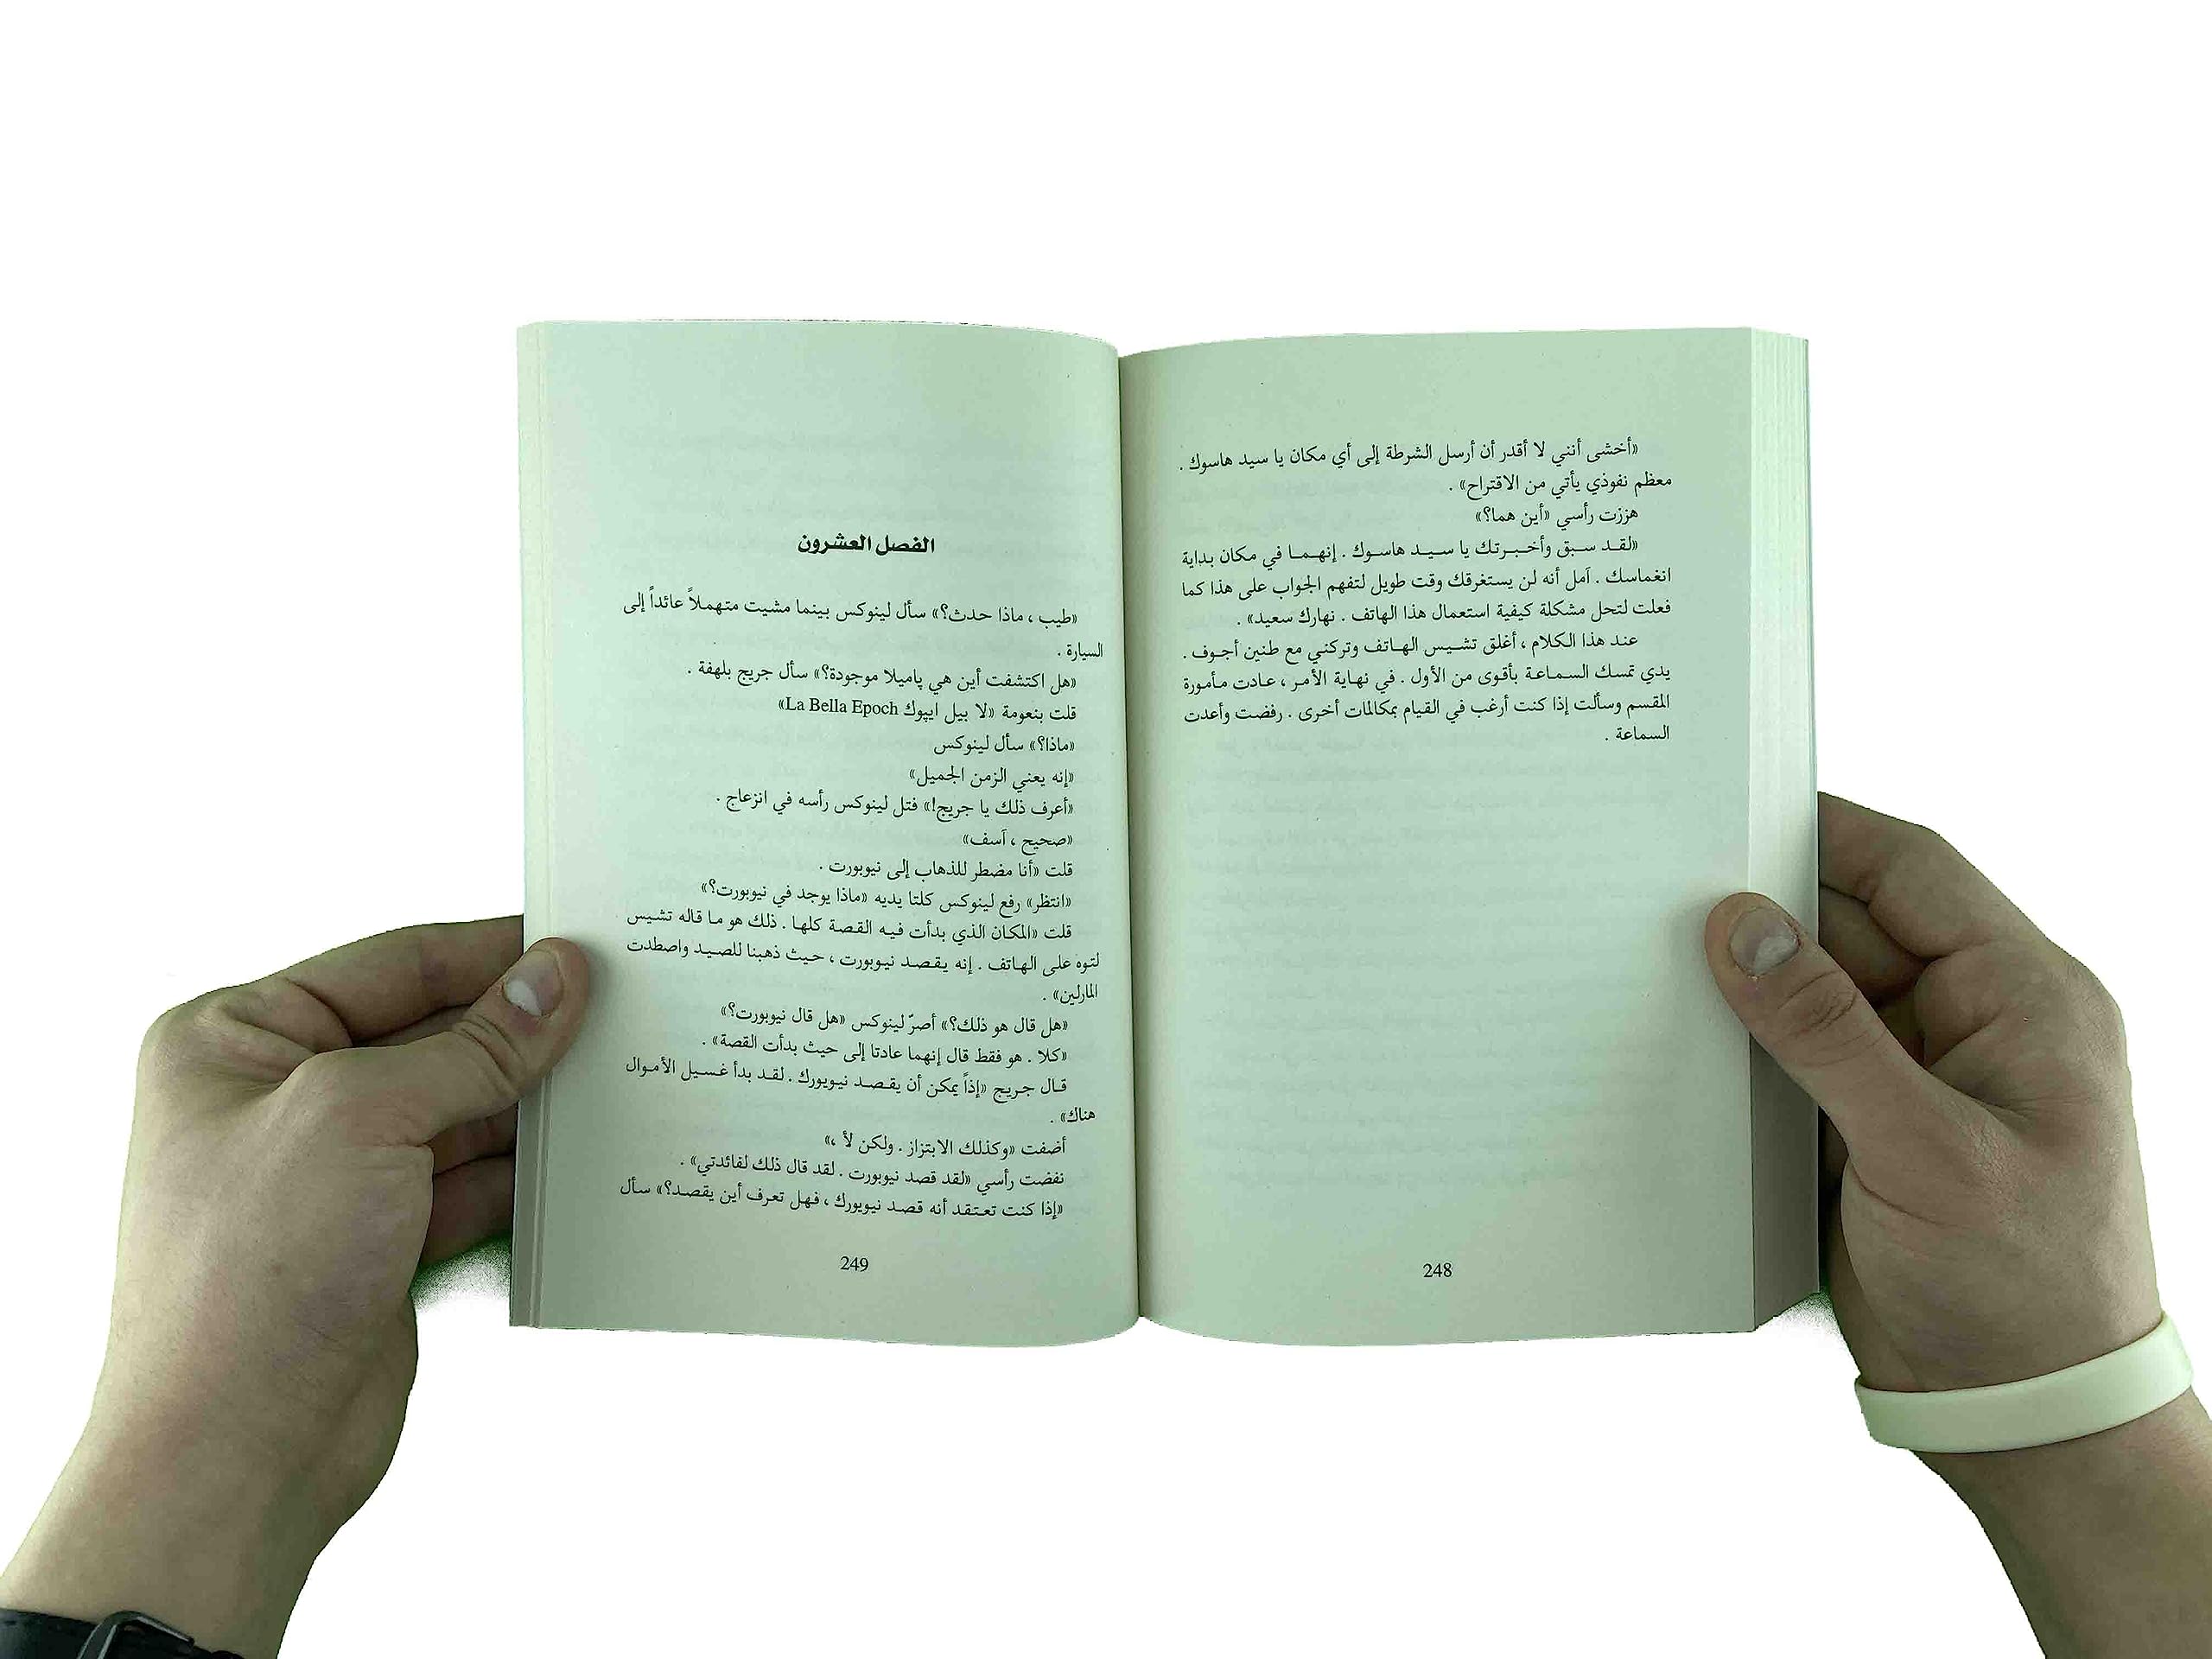 «أخشى أنني لا أقدر أن أرسل الشرطة إلى أي مكان يا سيد هاسوك .
معظم نفوذي يأتي من الاقتراح» .
هززت رأسي «أين هما؟»
«لقد سبق وأخبرتك يا سيد هاسوك . إنهما في مكان بداية
انغماسك . آمل أنه لن يستغرقك وقت طويل لتفهم الجواب على هذا كما
فعلت لتحل مشكلة كيفية استعمال هذا الهاتف . نهارك سعيد» .
عند هذا الكلام ، أغلق تشيس الهاتف وتركني مع طنين أجوف .
يدي تمسك السماعة بأقوى من الأول . في نهاية الأمر ، عادت مأمورة
المقسم وسألت إذا كنت أرغب في القيام بمكالمات أخرى . رفضت وأعدت
السماعة .
248
الفصل العشرون
«طيب ، ماذا حدث؟» سأل لينوكس بينما مشيت متهملاً عائداً إلى
السيارة .
«هل اكتشفت أين هي پاميلا موجودة؟» سأل جريج بلهفة .
قلت بنعومة «لا بيل ايپوك La Bella Epoch»
«ماذا؟» سأل لينوكس
«إنه يعني الزمن الجميل»
«أعرف ذلك يا جريج!» فتل لينوكس رأسه في انزعاج .
«صحيح ، آسف»
قلت «أنا مضطر للذهاب إلى نيوبورت .
«انتظر» رفع لينوكس كلتا يديه «ماذا يوجد في نيوبورت؟»
قلت «المكان الذي بدأت فيه القصة كلها . ذلك هو ما قاله تشيس
لتوه على الهاتف . إنه يقصد نيوبورت ، حيث ذهبنا للصيد واصطدت
المارلين» .
«هل قال هو ذلك؟» أصرّ لينوكس «هل قال نيوبورت؟»
«كلا . هو فقط قال إنهما عادتا إلى حيث بدأت القصة» .
قال جريج «إذاً يمكن أن يقصد نيويورك . لقد بدأ غسيل الأموال
هناك» .
أضفت «وكذلك الابتزاز . ولكن لأ ،»
نفضت رأسي «لقد قصد نيوبورت . لقد قال ذلك لفائدتي» .
«إذا كنت تعتقد أنه قصد نيويورك ، فهل تعرف أين يقصد؟» سأل
249